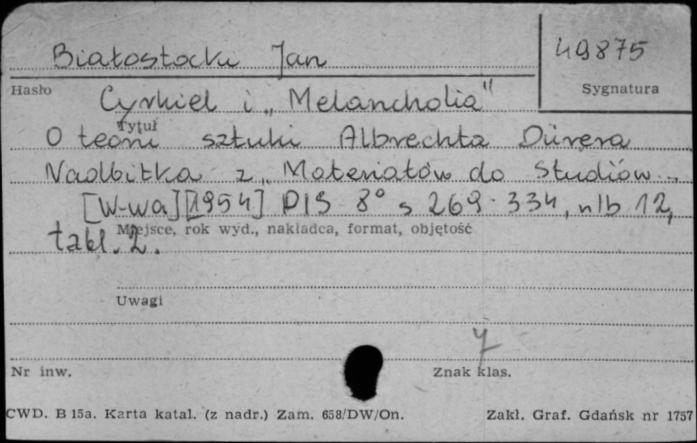 Białostocki Jan
49875
Hasło
Sygnatura
Cyrkiel i „Melancholia"
Tytuł
O teorii sztuki Albrechta Dürera
Nadbitka z „Materiałów do Studiów..
[W-wa] [1954] PIS 8° s 269-334, nlb 12,
Miejsce, rok wyd., nakładca, format, objętość
tabl. 2.
Uwagi
7
Nr inw.
Znak klas.
CWD. B 15a. Karta katal. (z nadr.) Zam. 658/DW/On.
Zakł. Graf. Gdańsk nr 1757